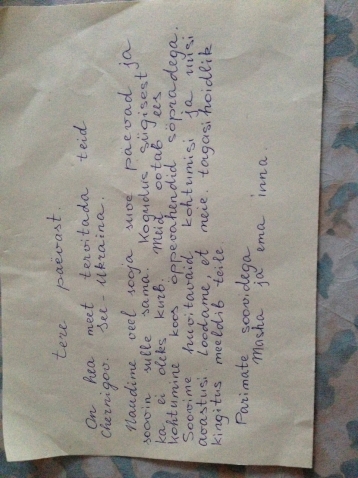 tere päevast.
On hea meet tervitada teid
Chernigov. see-Ukraina.
Naudime veel sooja suve päevad ja
soovin sulle sama. Kogudus sügisest
ka ei oleks kurb. Meid ootab ees
kohtumine koos õppevahendid sõpradega.
Soovime huvitavaid kohtumisi ja uusi
avastusi Loodame, et meie tagasihoidlik
kingitus meeldib teile
Parimate soovidega
Masha ja ema inna